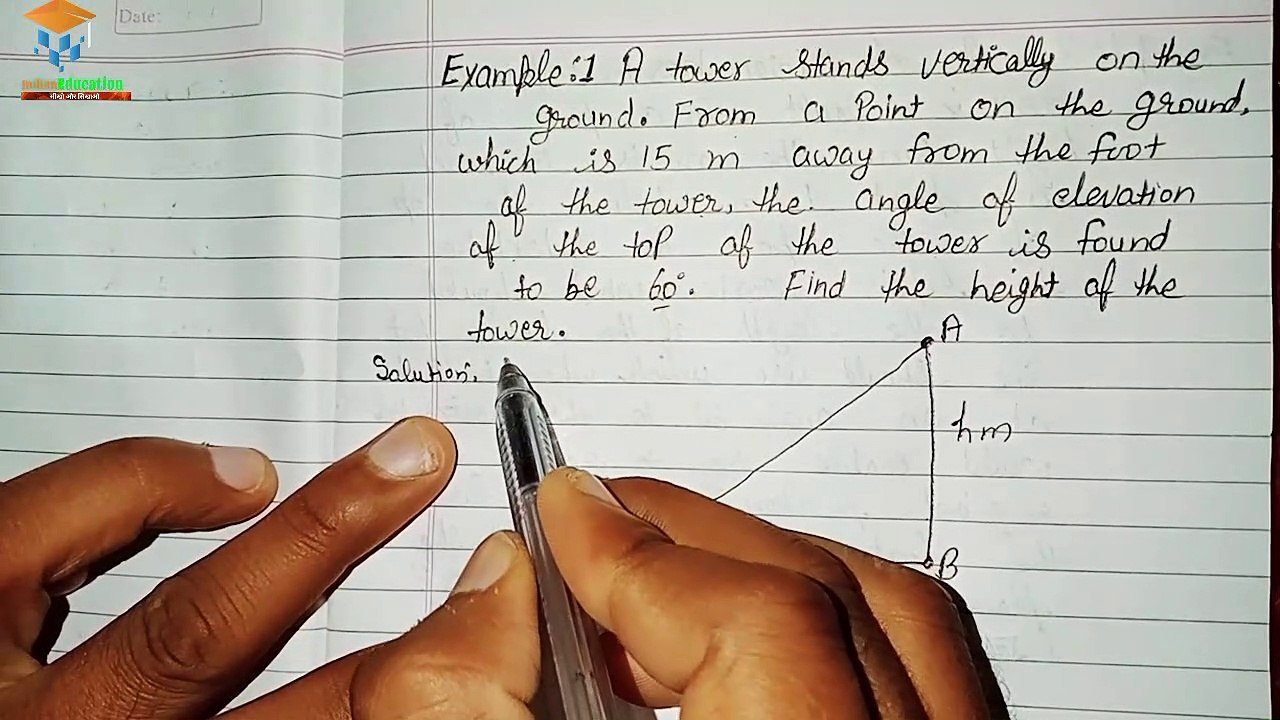 Date:
Education
सीखो और सिखाओ
Example:1 A tower stands vertically on the
ground. From a Point on the ground,
which is 15 m away from the foot
of the tower, the angle of elevation
of the top of the tower is found
to be 60°. Find the height of the
tower.
Solution:
A
h m
B